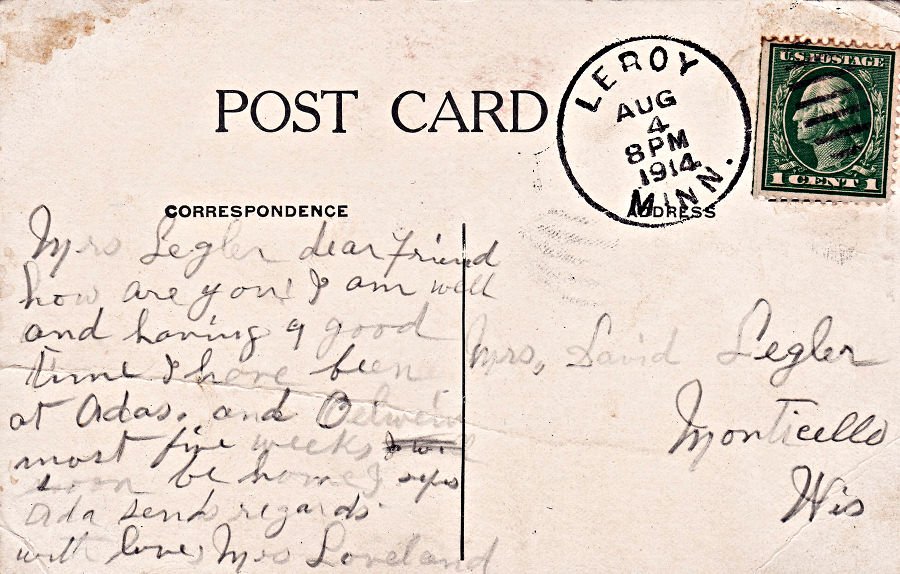 POST CARD
LEROY
AUG
4
8PM
1914
MINN.
U.S. POSTAGE
1 CENT 1
CORRESPONDENCE
ADDRESS
Mrs Legler dear friend
how are you I am well
and having a good
time I have been
at Adas. and Oelwein
most five weeks
soon be home
Ada send regards
with love Mrs Loveland
Mrs, David Legler
Monticello
Wis